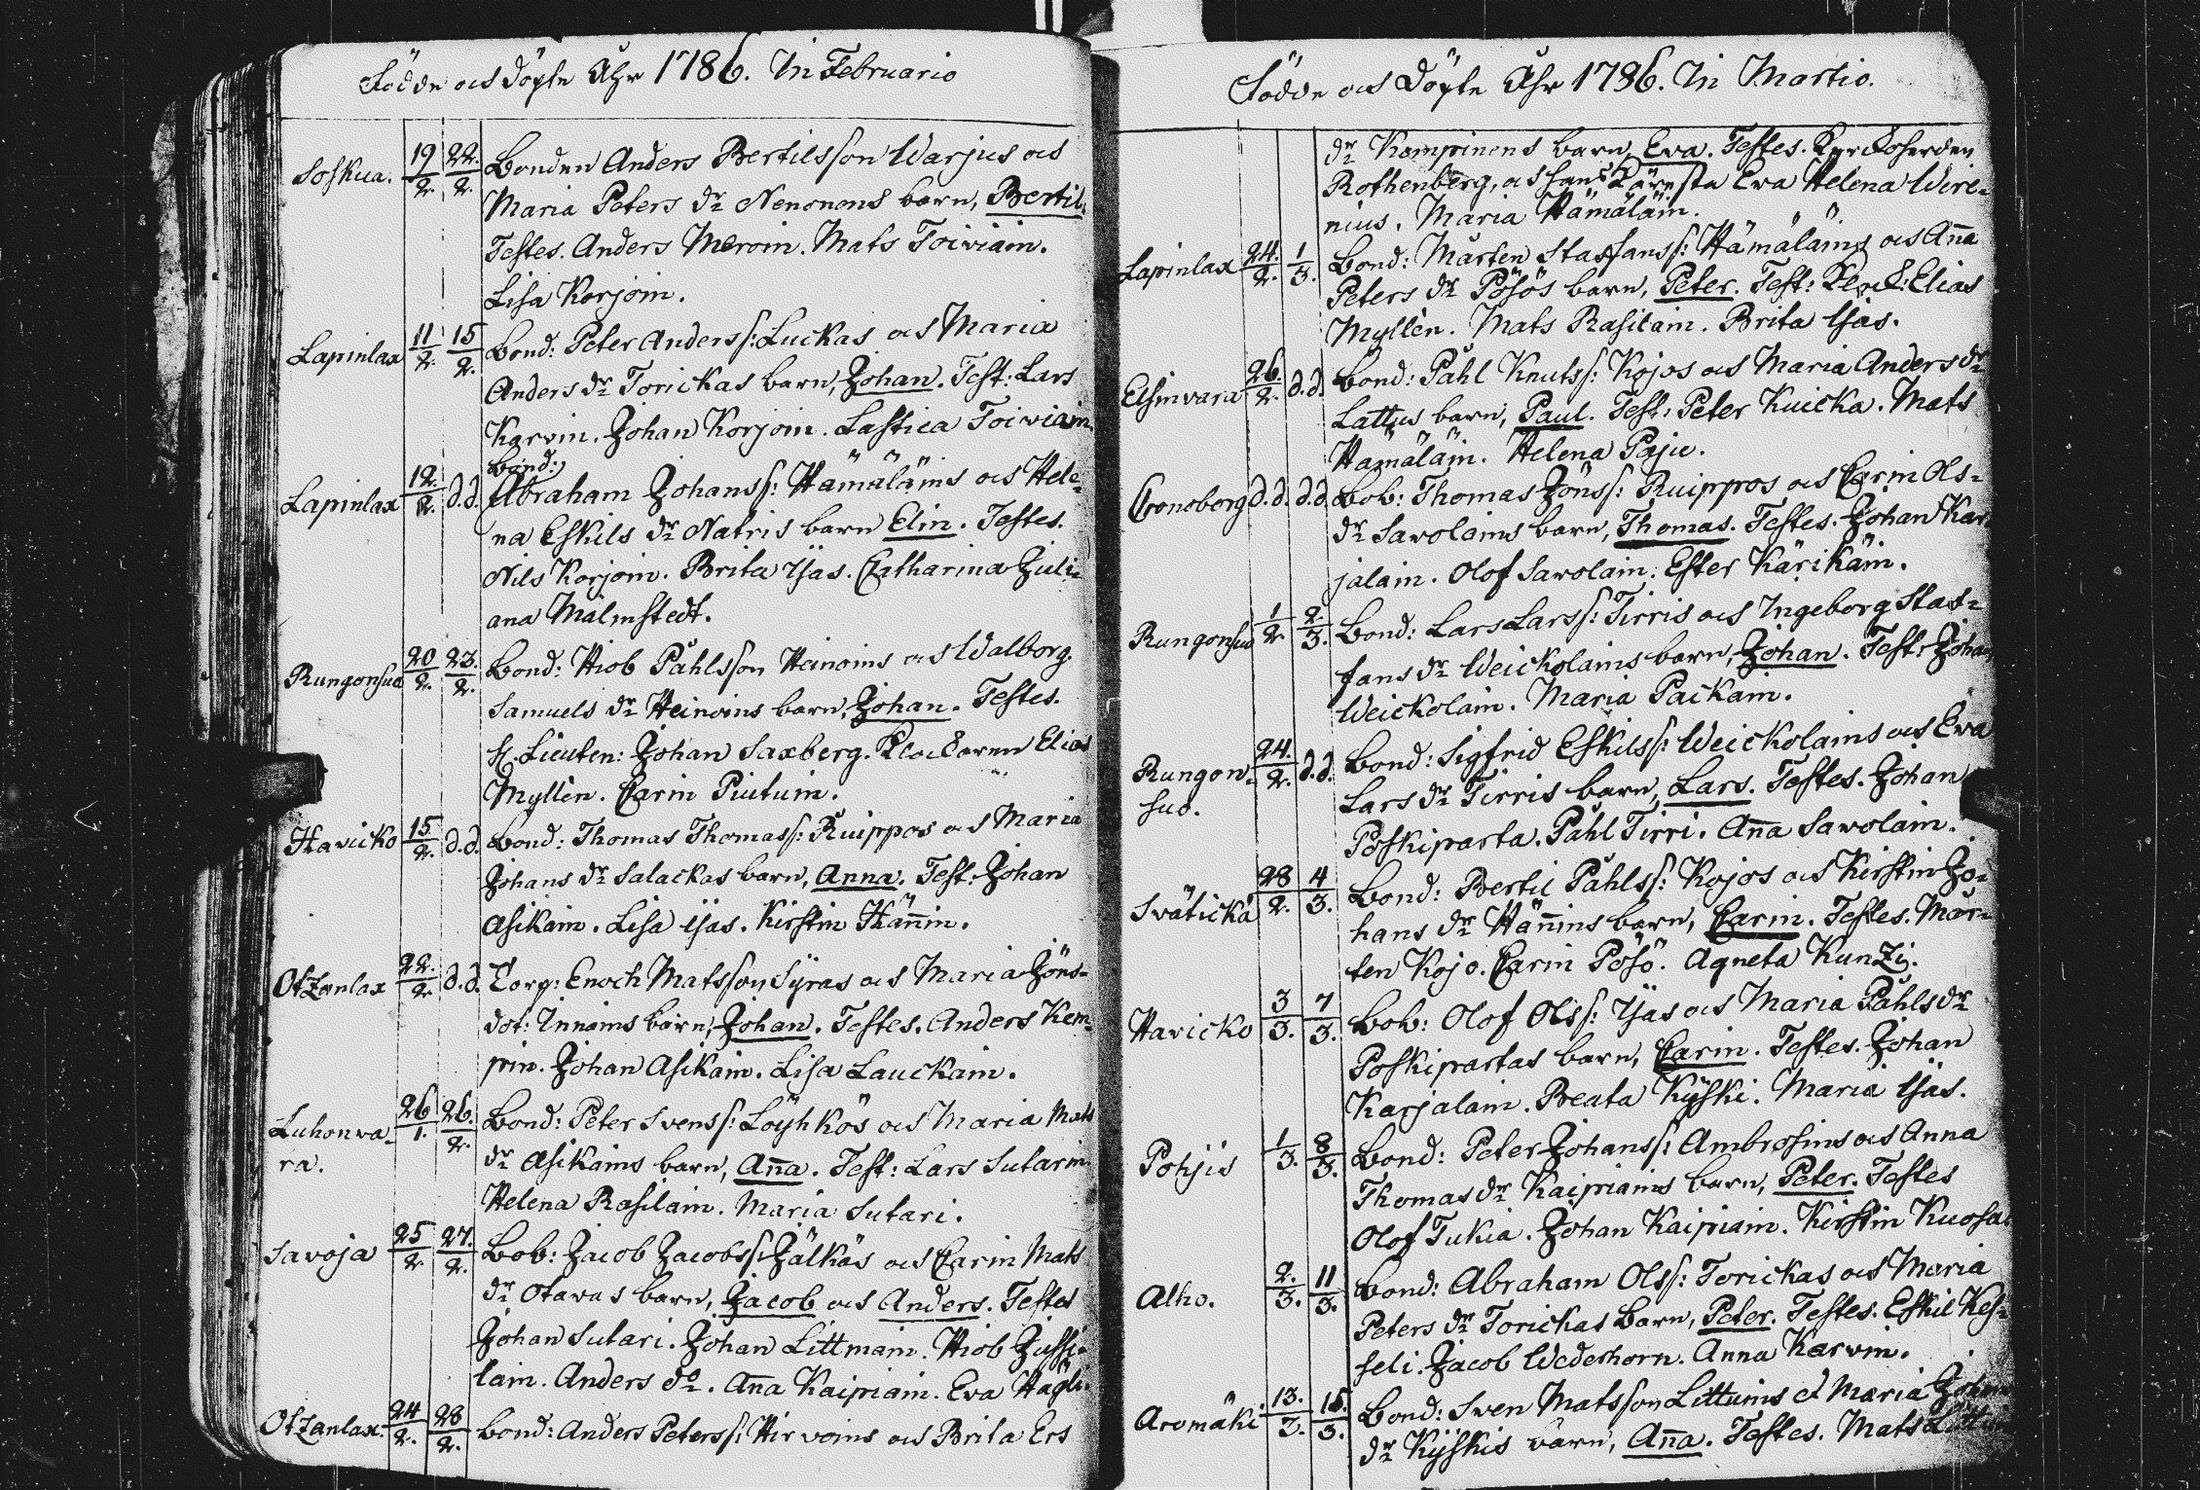 Födde och Döpte Åhr 1786. In Februario
Soskua. 19/2. 22./2. Bonden Anders Bertilsson Warjus och
Maria Peters dr Nenonens barn, Bertil.
Testes. Anders Meroin. Mats Toiviain.
Lisa Korjoin.
Lapinlax 11/2. 15/2. Bond: Peter Anderss: Luckas och Maria
Anders dr Torickas barn, Johan. Test: Lars
Karvin. Johan Korjoin. Lastica Toiviain.
Bond:
Lapinlax 12./2. d.d. Abraham Johanss: Hämäläins och Hele=
na Eskils dr Natris barn Elin. Testes.
Nils Korjoin. Brita Yjas. Catharina Juli=
ana Malmstedt.
Rungonsuo 20/2. 23./2. Bond: Hiob Påhlsson Heinoins och Walborg
Samuels dr Heinoins barn, Johan. Testes.
H. Lieuten: Johan Saxberg. Klockaren Elias
Myllèn. Carin Piutuin.
Havicko 15/2. d.d. Bond: Thomas Thomass: Ruippos och Maria
Johans dr Salackas barn, Anna. Test. Johan
Asikain. Lisa Yjas. Kirstin Hännin.
Otzanlax 22./2 d.d. Corp: Enoch Matsson Syras och Maria Jöns=
dot: Innains barn, Johan. Testes. Anders Kem=
pin. Johan Asikain. Lisa Lauckain.
Luhonva= 26/1. 26./2. Bond: Peter Svenss: Löyhkös och Maria Mats
ra. dr Asikains barn, Anna. Test: Lars Sutarin
Helena Rasilain. Maria Sutari.
Savoja 25/2 27./2. Bob: Jacob Jacobss: Jälkäs och Carin Mats
dr Otavas barn, Jacob och Anders. Testes
Johan Sutari. Johan Littmain. Hiob Jussi=
lain. Anders do. Anna Kaipiain. Eva Hägli.
Otzanlax. 24/2. 28/2. Bond: Anders Peterss: Hirvoins och Brita Ers
Födde och Döpte Åhr 1786. In Martio.
dr Kempinens barn, Eva. Testes.
Rothenberg, och hans Käresta Eva Helena Wire=
nius. Maria Hämäläin.
Lapinlax 24./2. 1/3. Bond: Mårten Staffanss: Hämäläins och Anna
Peters dr Pösös barn, Peter. Test: Klock: Elias
Myllèn. Mats Rasilain. Brita Yjas.
Elsinvara 26/2. d.d. Bond: Påhl Knutss: Kojos och Maria Anders dr
Lattus barn, Paul. Test: Peter Kuicka. Mats
Hämäläin. Helena Paju.
Cronoborg d.d. d.d. Bob: Thomas Jönss: Ruippos och Carin Ols=
dr Savolains barn, Thomas. Testes. Johan Kar
jalain. Olof Savolain. Ester Kärikäin.
Rungonsuo 1/2. 2./3. Bond: Lars Larss: Tirris och Ingeborg Staf=
fans dr Weickolains barn, Johan. Test: Johan
Weickolain. Maria Packain.
Rungon= 24./2. d.d. Bond: Sigfrid Eskilss: Weickolains och Eva
suo. Lars dr Tirris barn, Lars. Testes. Johan
Poskiparta. Påhl Tirri. Anna Savolain.
Svätickä 28/2. 4/3. Bond: Bertil Påhlss: Kojos och Kirstin Jo=
hans dr Hännins barn, Carin. Testes. Mår=
ten Kojo. Carin Pösö. Agneta Kunzi.
Havicko 3/3. 7/3. Bob: Olof Olss: Yjas och Maria Påhls dr
Poskipartas barn, Carin. Testes. Johan
Karjalain. Beata Kyski. Maria Yjas.
Pohjis 1/3. 8/3. Bond: Peter Johanss: Ambrosins och Anna
Thomas dr Kaipiains barn, Peter. Testes
Olof Tukia. Johan Kaipiain. Kirstin Kuosa.
Alho. 2./3. 11/3. Bond: Abraham Olss: Torickas och Maria
Peters dr Torickas Barn, Peter. Testes. Eskil Kes=
seli. Jacob Wederhorn. Anna Karvin.
Aromäki 13./3. 15./3. Bond: Sven Matsson Littuins et Maria Johan
dr Kyskis barn, Anna. Testes. Mats